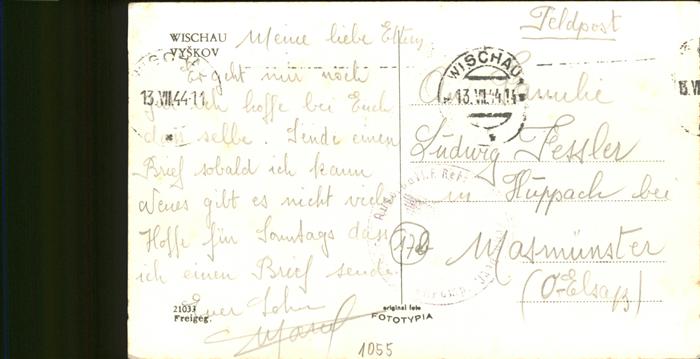 WISCHAU
VYŠKOV
Meine liebe Eltern
Es geht mir noch
gut ich hoffe bei Euch
das selbe. Sende einen
Brief sobald ich kann
Neues gibt es nicht viel
Hoffe für Sonntags dass
ich einen Brief sende.
Euer Sohn
Marcel
21033
Freigeg.
original foto
FOTOTYPIA
1055
Feldpost
WISCHAU
13.VII.44-11
WISCHAU
13.VII.44-14
An Familie
Ludwig Fessler
in Huppach bei
Masmünster
(O-Elsaß)
17b